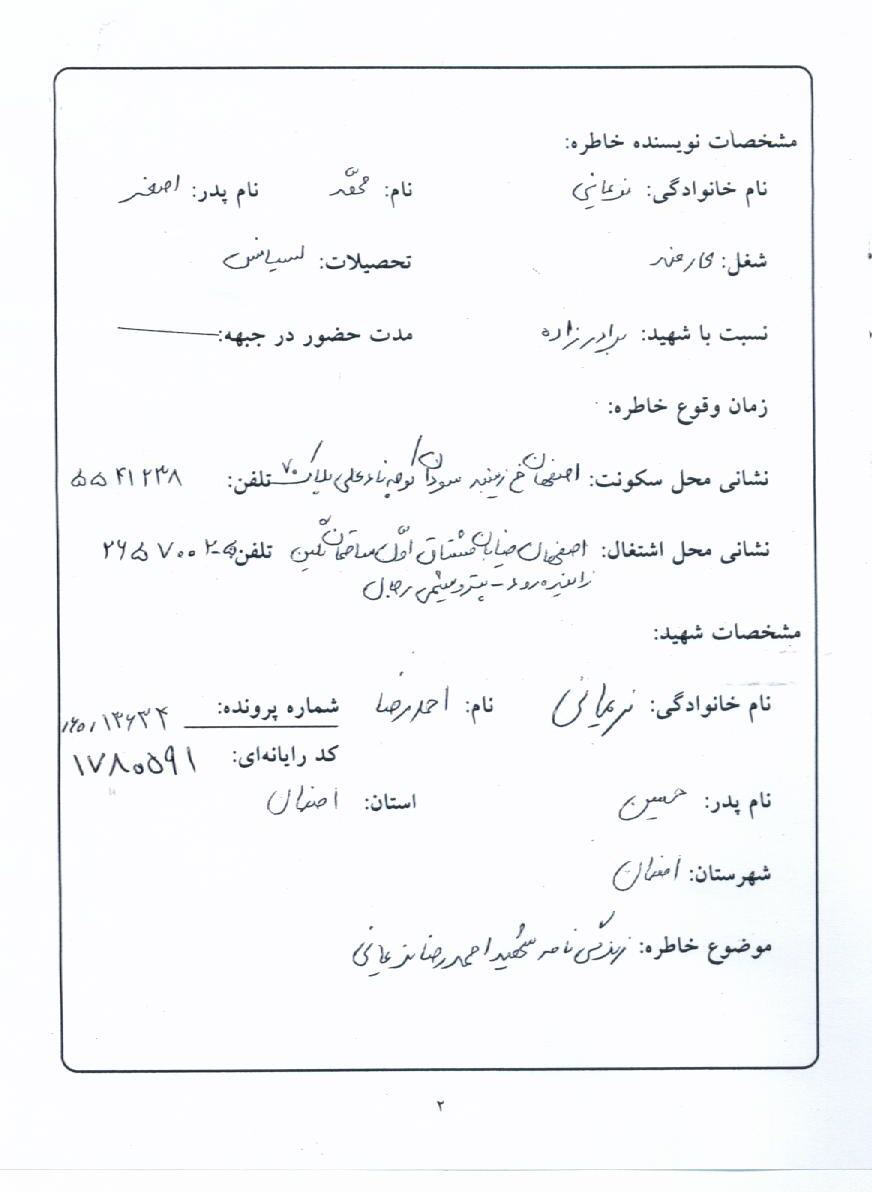 مشخصات نویسنده خاطره:
نام خانوادگی: نریمانی نام: محمّد نام پدر: اصغر
شغل: کارمند تحصیلات: لیسانس
نسبت با شهید: برادرزاده مدت حضور در جبهه:
زمان وقوع خاطره:
نشانی محل سکونت: اصفهان خ زینبیه سودان کوچه نادعلی پلاک ۷۰ تلفن: ۵۵۴۱۲۳۸
نشانی محل اشتغال: اصفهان خیابان مشتاق اوّل ساختمان نگین تلفن: ۵-۲۶۵۷۰۰۲
زاینده رود - پتروشیمی
مشخصات شهید:
نام خانوادگی: نریمانی نام: احمدرضا شماره پرونده: ۱۳۶۳۴
کد رایانه‌ای: ۱۷۸۰۵۹۱
نام پدر: حسین استان: اصفهان
شهرستان: اصفهان
موضوع خاطره: زندگی نامه شهید احمدرضا نریمانی
۲